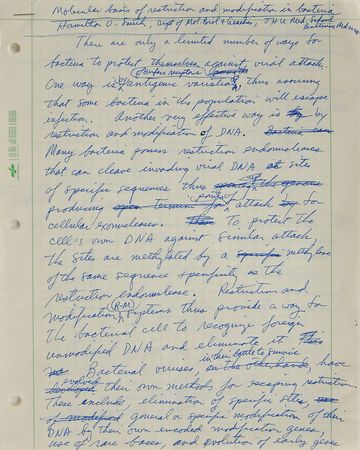 Molecular basis of restriction and modification in bacteria
Hamilton O. Smith, Dept of Mol. Biol & Genetics, JHU Med. School
Baltimore Md
There are only a limited number of ways for
bacteria to protect themselves against viral attack.
of surface receptors
One way is by antigenic variation thus assuring
that some bacteria in the population will escape
infection. Another very effective way is by
restriction and modification of DNA.
Many bacteria possess restriction endonucleases
that can cleave invading viral DNA at sites
of specific sequences thus
producing points of attack for
cellular exonucleases. To protect the
cell's own DNA against similar attack,
the sites are methylated by a methylase
of the same sequence specificity as the
restriction endonuclease. Restriction and
modification (R-M) systems thus provide a way for
the bacterial cell to recognize foreign
unmodified DNA and eliminate it
in their battle to survive
Bacterial viruses, on the other hand, have
evolved their own methods for escaping restriction
these include elimination of specific sites,
of modified general or specific modification of their
DNA by their own encoded modification genes,
use of rare bases, and evolution of early gene